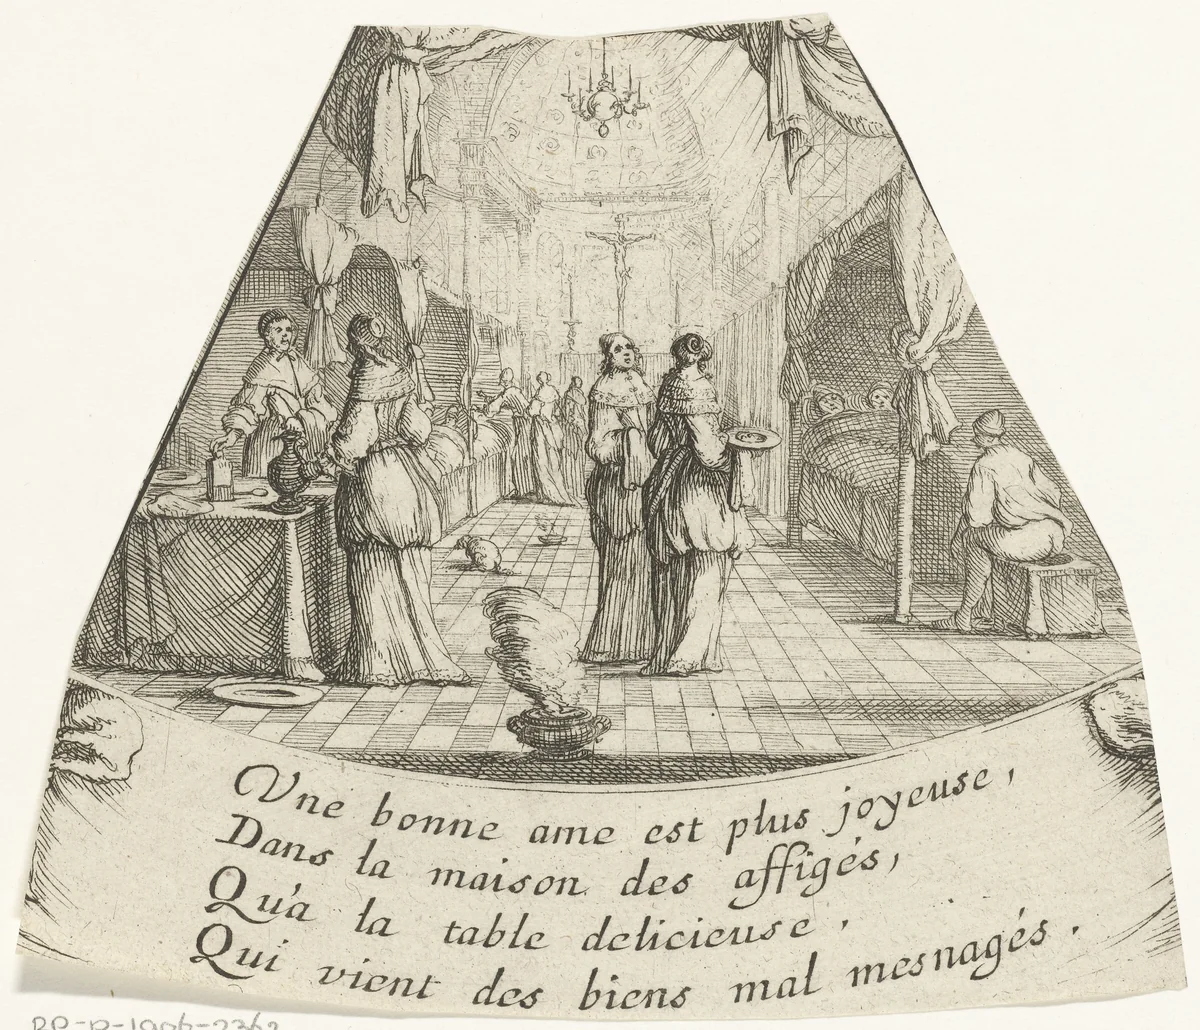 Vne bonne ame est plus joyeuse,
Dans la maison des affigés,
Qu'a la table delicieuse,
Qui vient des biens mal mesnagés.
RP-P-1906-2362